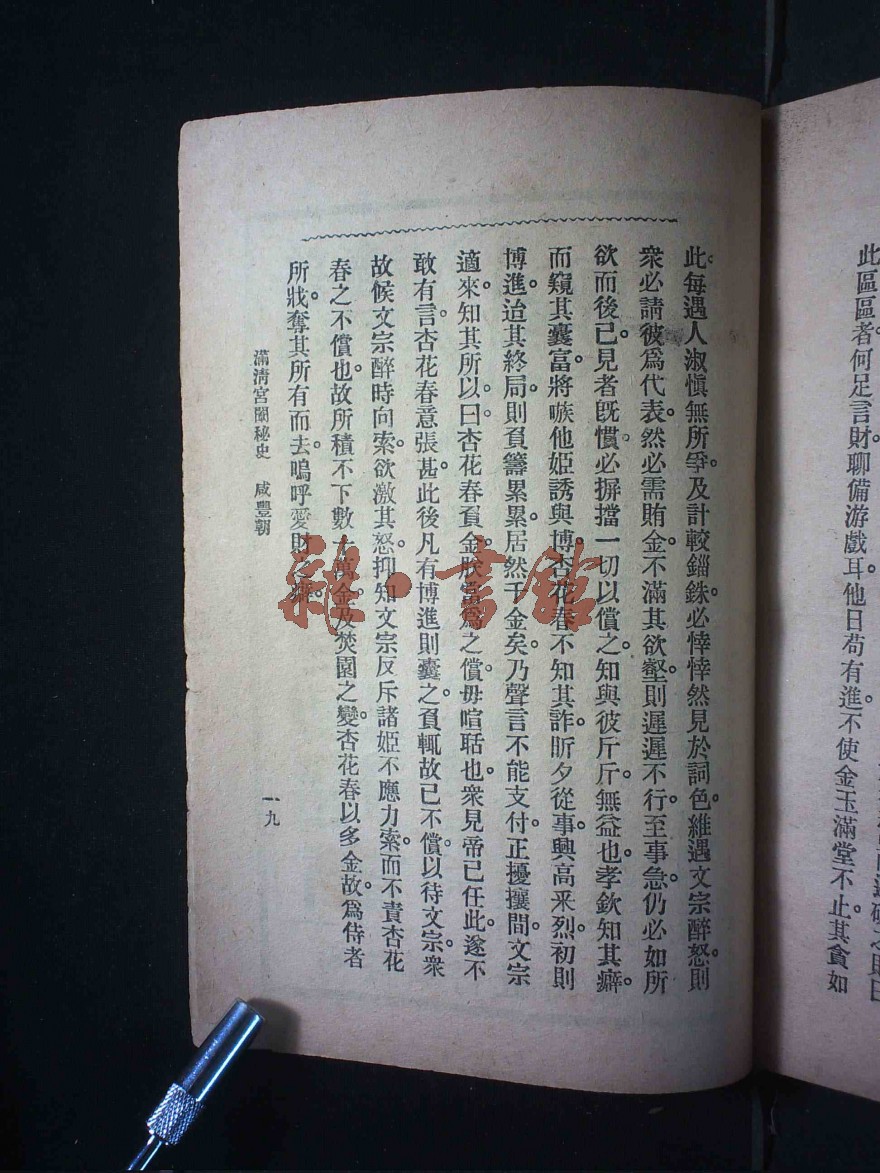 此區區者。何足言財。聊備游戲耳。他日苟有進。不使金玉滿堂不止。其貪如
此。每遇人淑愼無所爭。及計較錙銖。必悻悻然見於詞色。維遇文宗醉怒。則
衆必請彼爲代表。然必需賄金。不滿其欲壑。則遲遲不行。至事急。仍必如所
欲而後已。見者旣慣。必摒擋一切以償之。知與彼斤斤無益也。孝欽知其癖。
而窺其囊富。將嗾他姬誘與博。杏花春不知其詐。昕夕從事。興高釆烈。初則
博進。迨其終局。則負籌累累。居然千金矣。乃聲言不能支付。正擾攘間。文宗
適來。知其所以。曰。杏花春負金。朕當爲之償。毋喧聒也。衆見帝已任此。遂不
敢有言。杏花春意張甚。此後凡有博進則囊之。負輒故已不償。以待文宗。衆
故候文宗醉時向索。欲激其怒。抑知文宗反斥諸姬不應力索。而不責杏花
春之不償也。故所積不下數十萬金。及焚園之變。杏花春以多金故。爲侍者
所戕。奪其所有而去。嗚呼。愛財之癖。
滿淸宮闈秘史 咸豐朝
一九
雜·書館